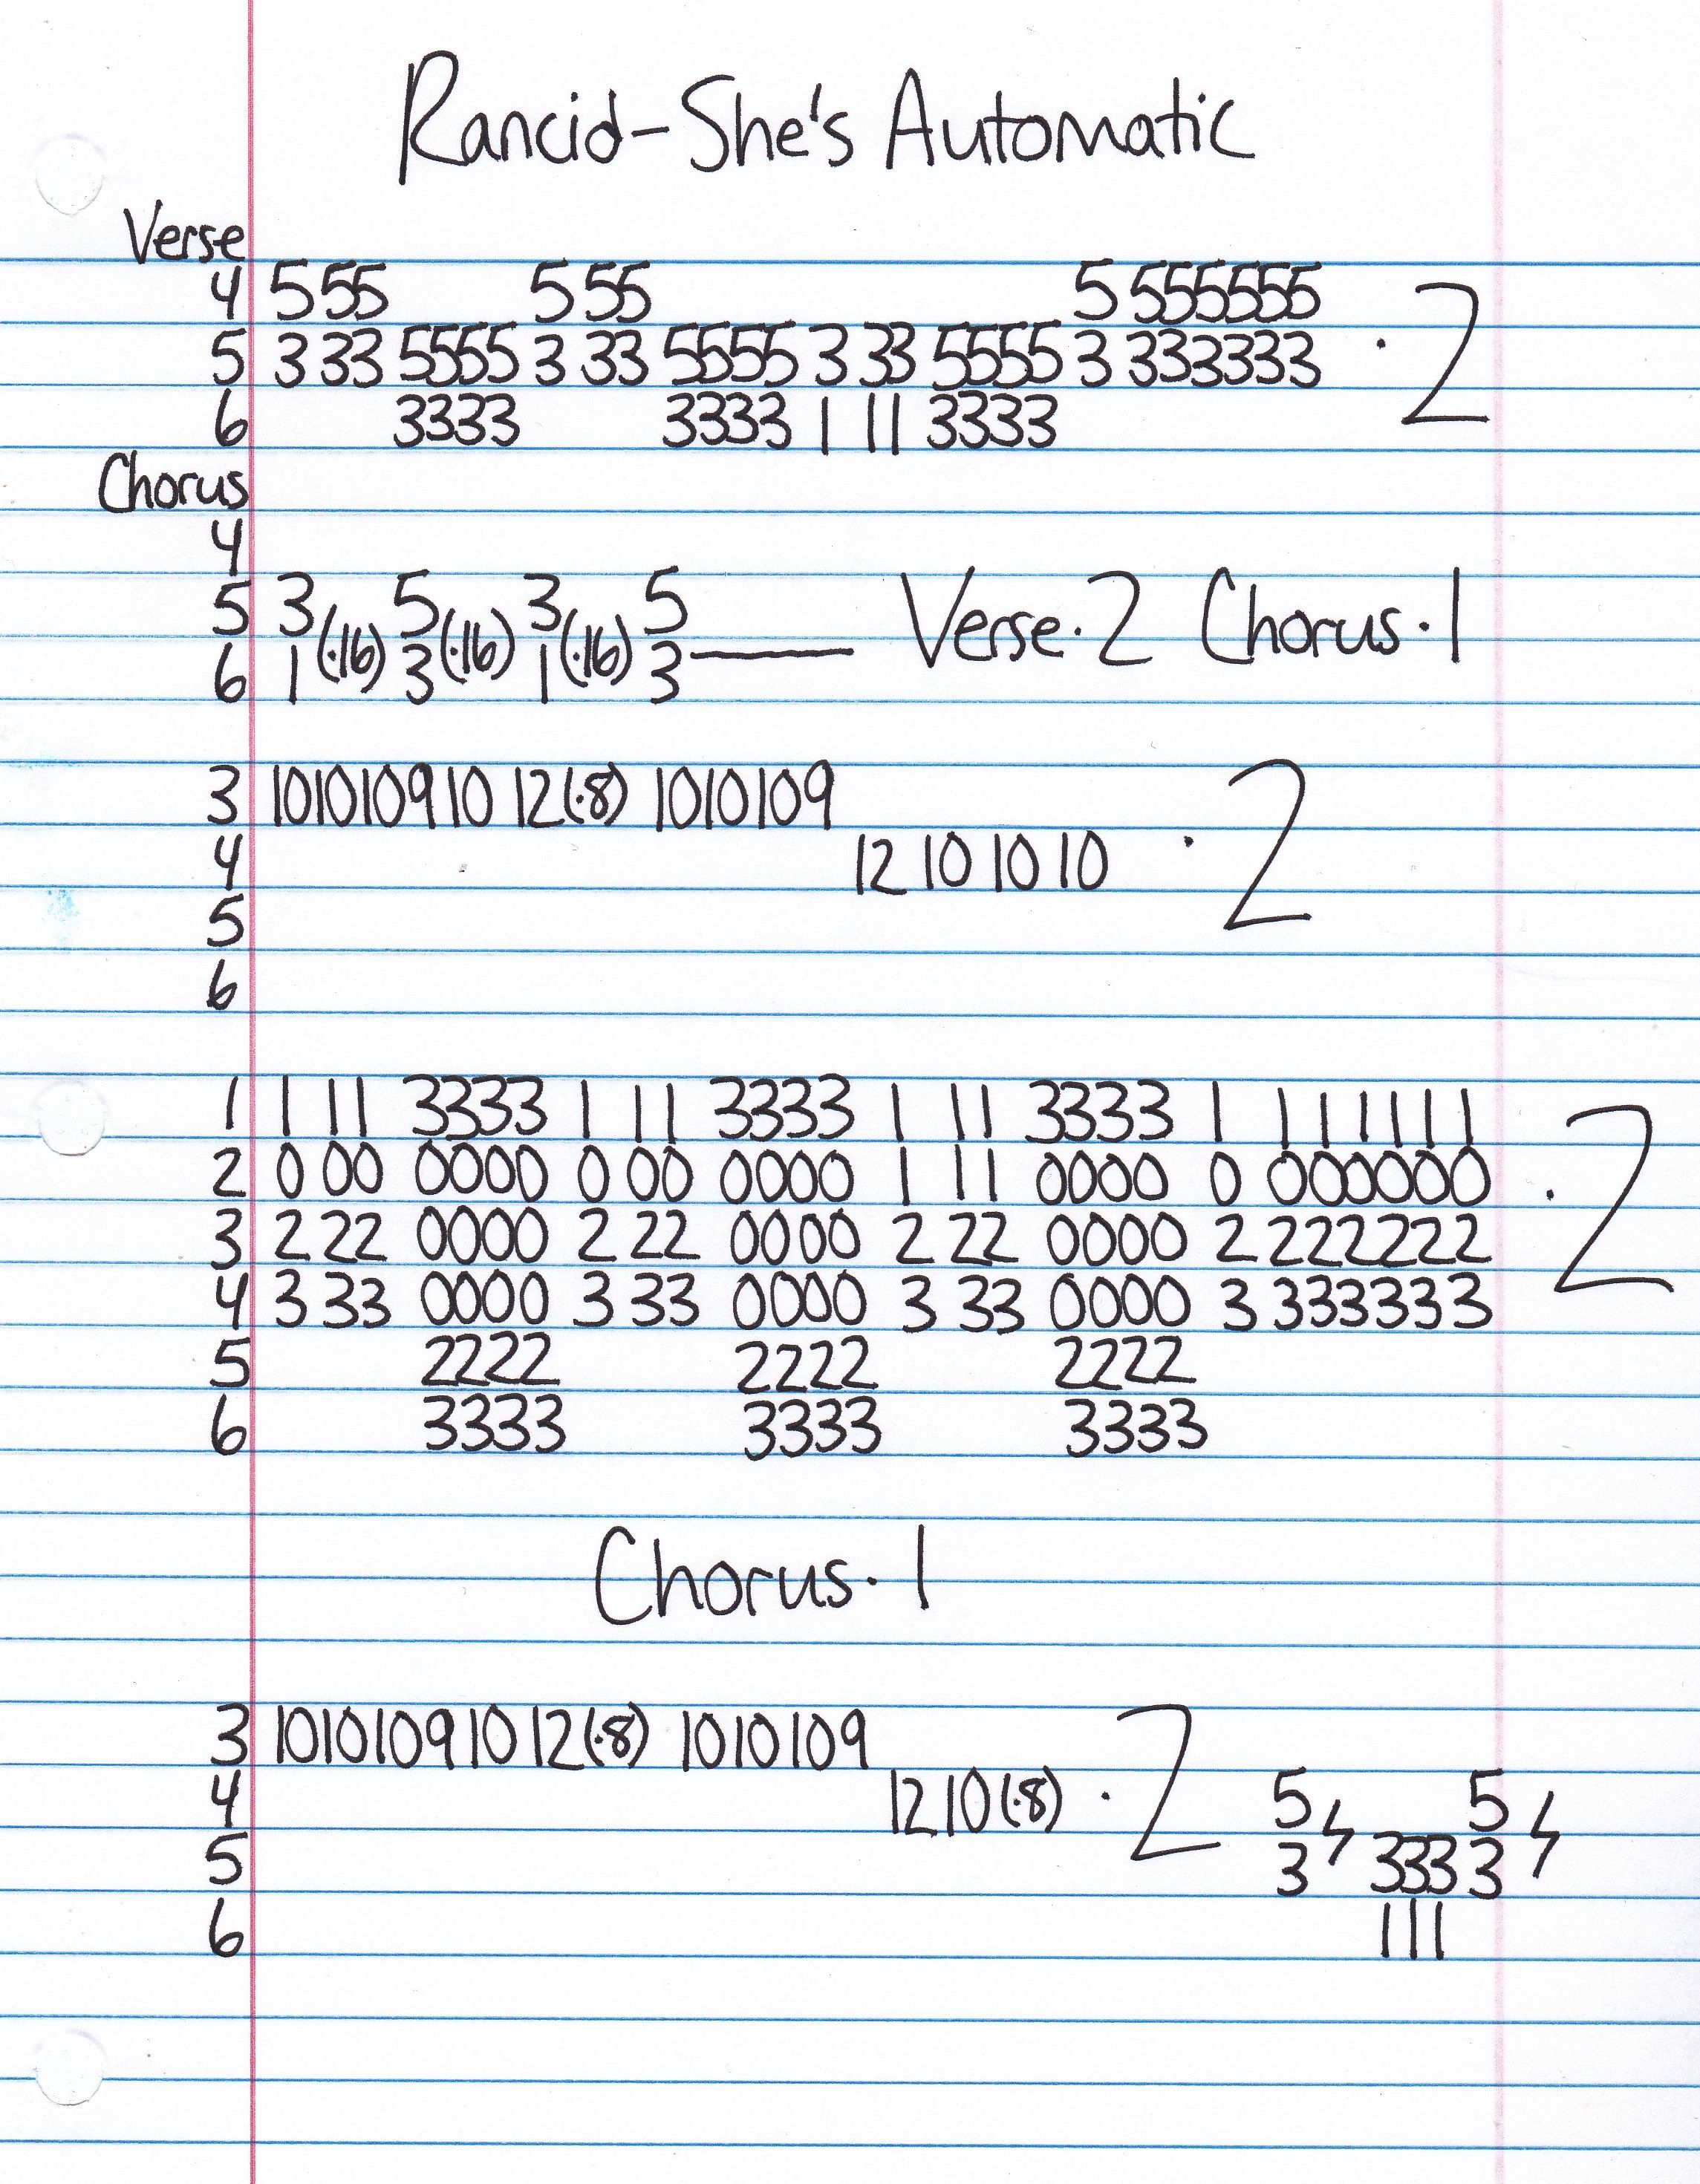 Rancid-She's Automatic
Verse
4 5 55 5 55 5 555555
5 3 33 5555 3 33 5555 3 33 5555 3 333333 · 2
6 3333 3333 1 11 3333
Chorus
4
5 3 5 3 5
(·16) (·16) (·16) Verse·2 Chorus·1
6 1 3 1 3
3 10101091012(·8) 1010109
4 12101010 · 2
5
6
1 1 11 3333 1 11 3333 1 11 3333 1 111111
2 0 00 0000 0 00 0000 1 11 0000 0 000000 · 2
3 2 22 0000 2 22 0000 2 22 0000 2 222222
4 3 33 0000 3 33 0000 3 33 0000 3 333333
5 2222 2222 2222
6 3333 3333 3333
Chorus·1
3 10101091012(·8) 1010109
4 1210(·8) · 2 5 5
5 3 333 3
6 111